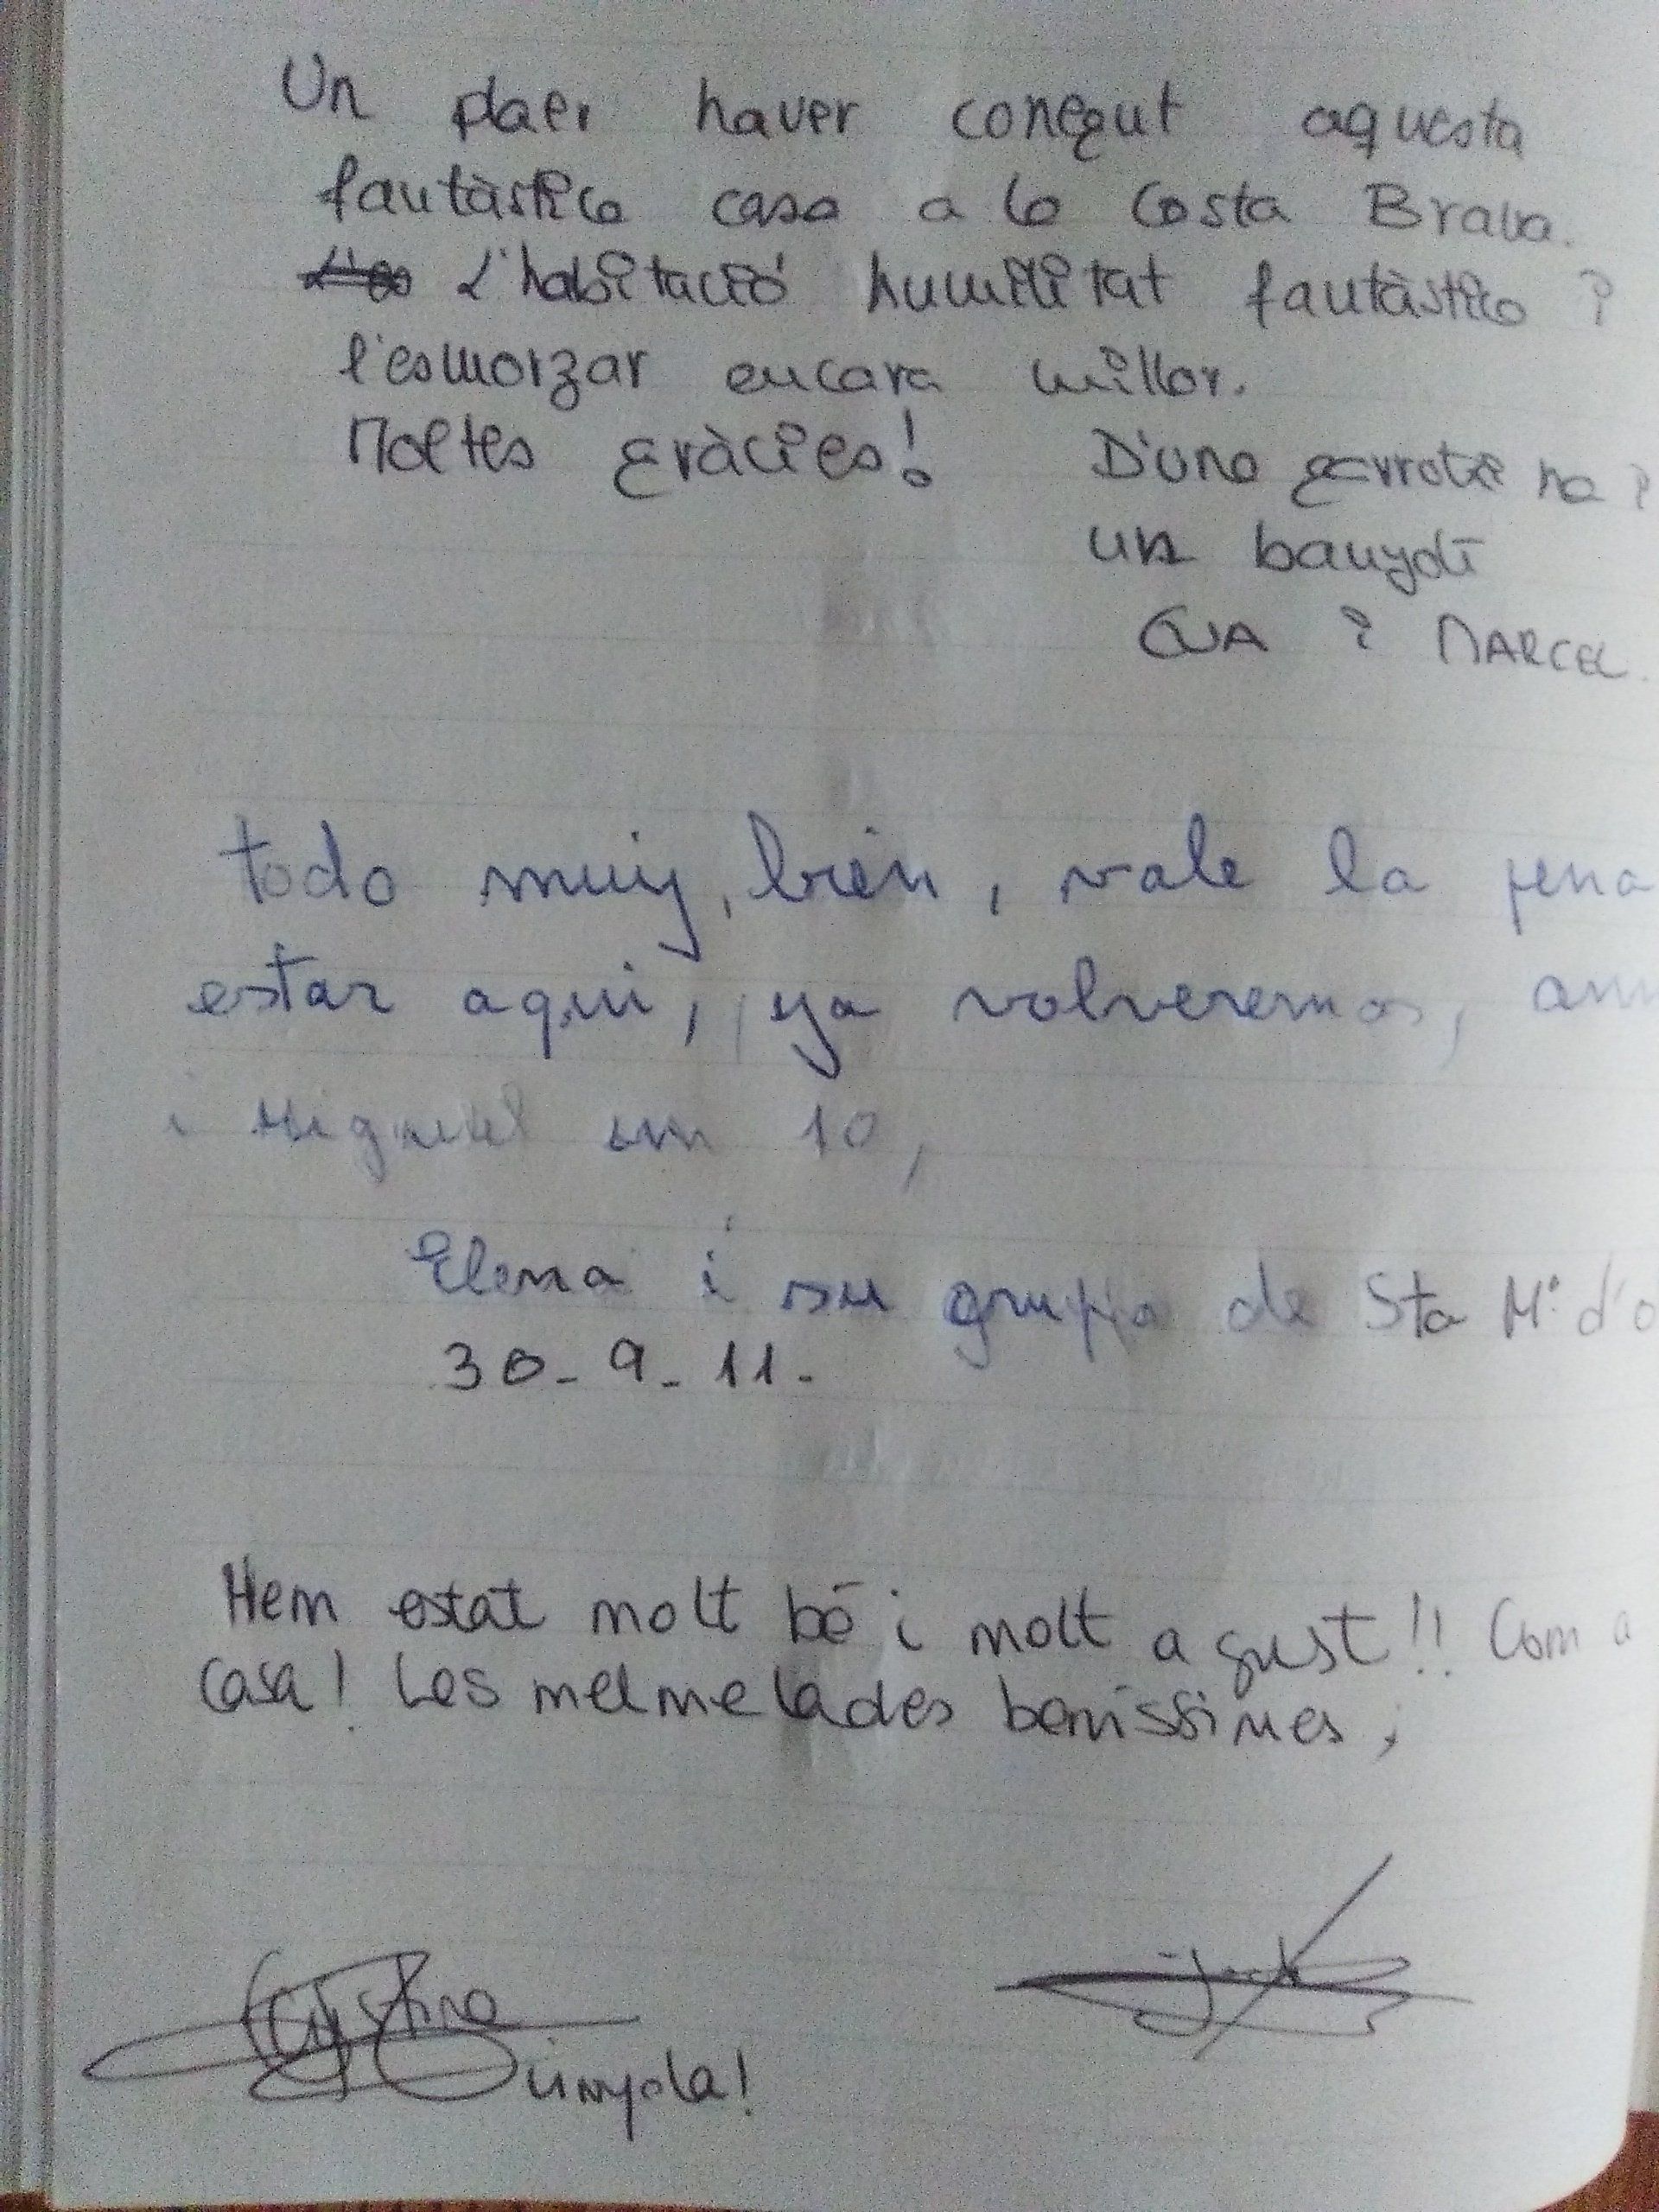 Un plaer haver conegut aquesta
fantàstica casa a la Costa Brava.
L'habitació humilitat fantàstica i
l'esmorzar encara millor.
Moltes gràcies! D'una garrotxina i
un banyolí
EVA i MARCEL.
todo muy, bien, vale la pena
estar aqui, ya volveremos,
i Miguel un 10,
Elena i su grupo de Sta Mª d'o
30-9-11.
Hem estat molt bé i molt a gust!! Com a
casa! Les melmelades boníssimes,
Cristina